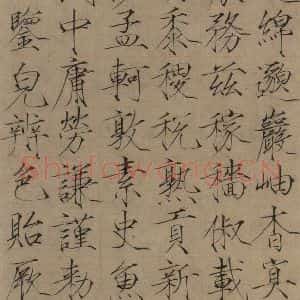 綿邈巖岫杳冥
務茲稼穡俶載
黍稷稅熟貢新
孟軻敦素史魚
中庸勞謙謹勅
鑒皃辨色貽厥
Shufawang.CN